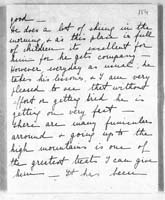 good —
154
He does a lot of skiing in the
morning & as this place is full
of children its excellent for
him for he gets company
However everyday as usual he
takes his lessons, & I am very
pleased to see that without
effort or getting tired he is
getting on very fast —
There are many funicular
arround & going up to the
high mountains is one of
the greatest treats I can give
him — It has been